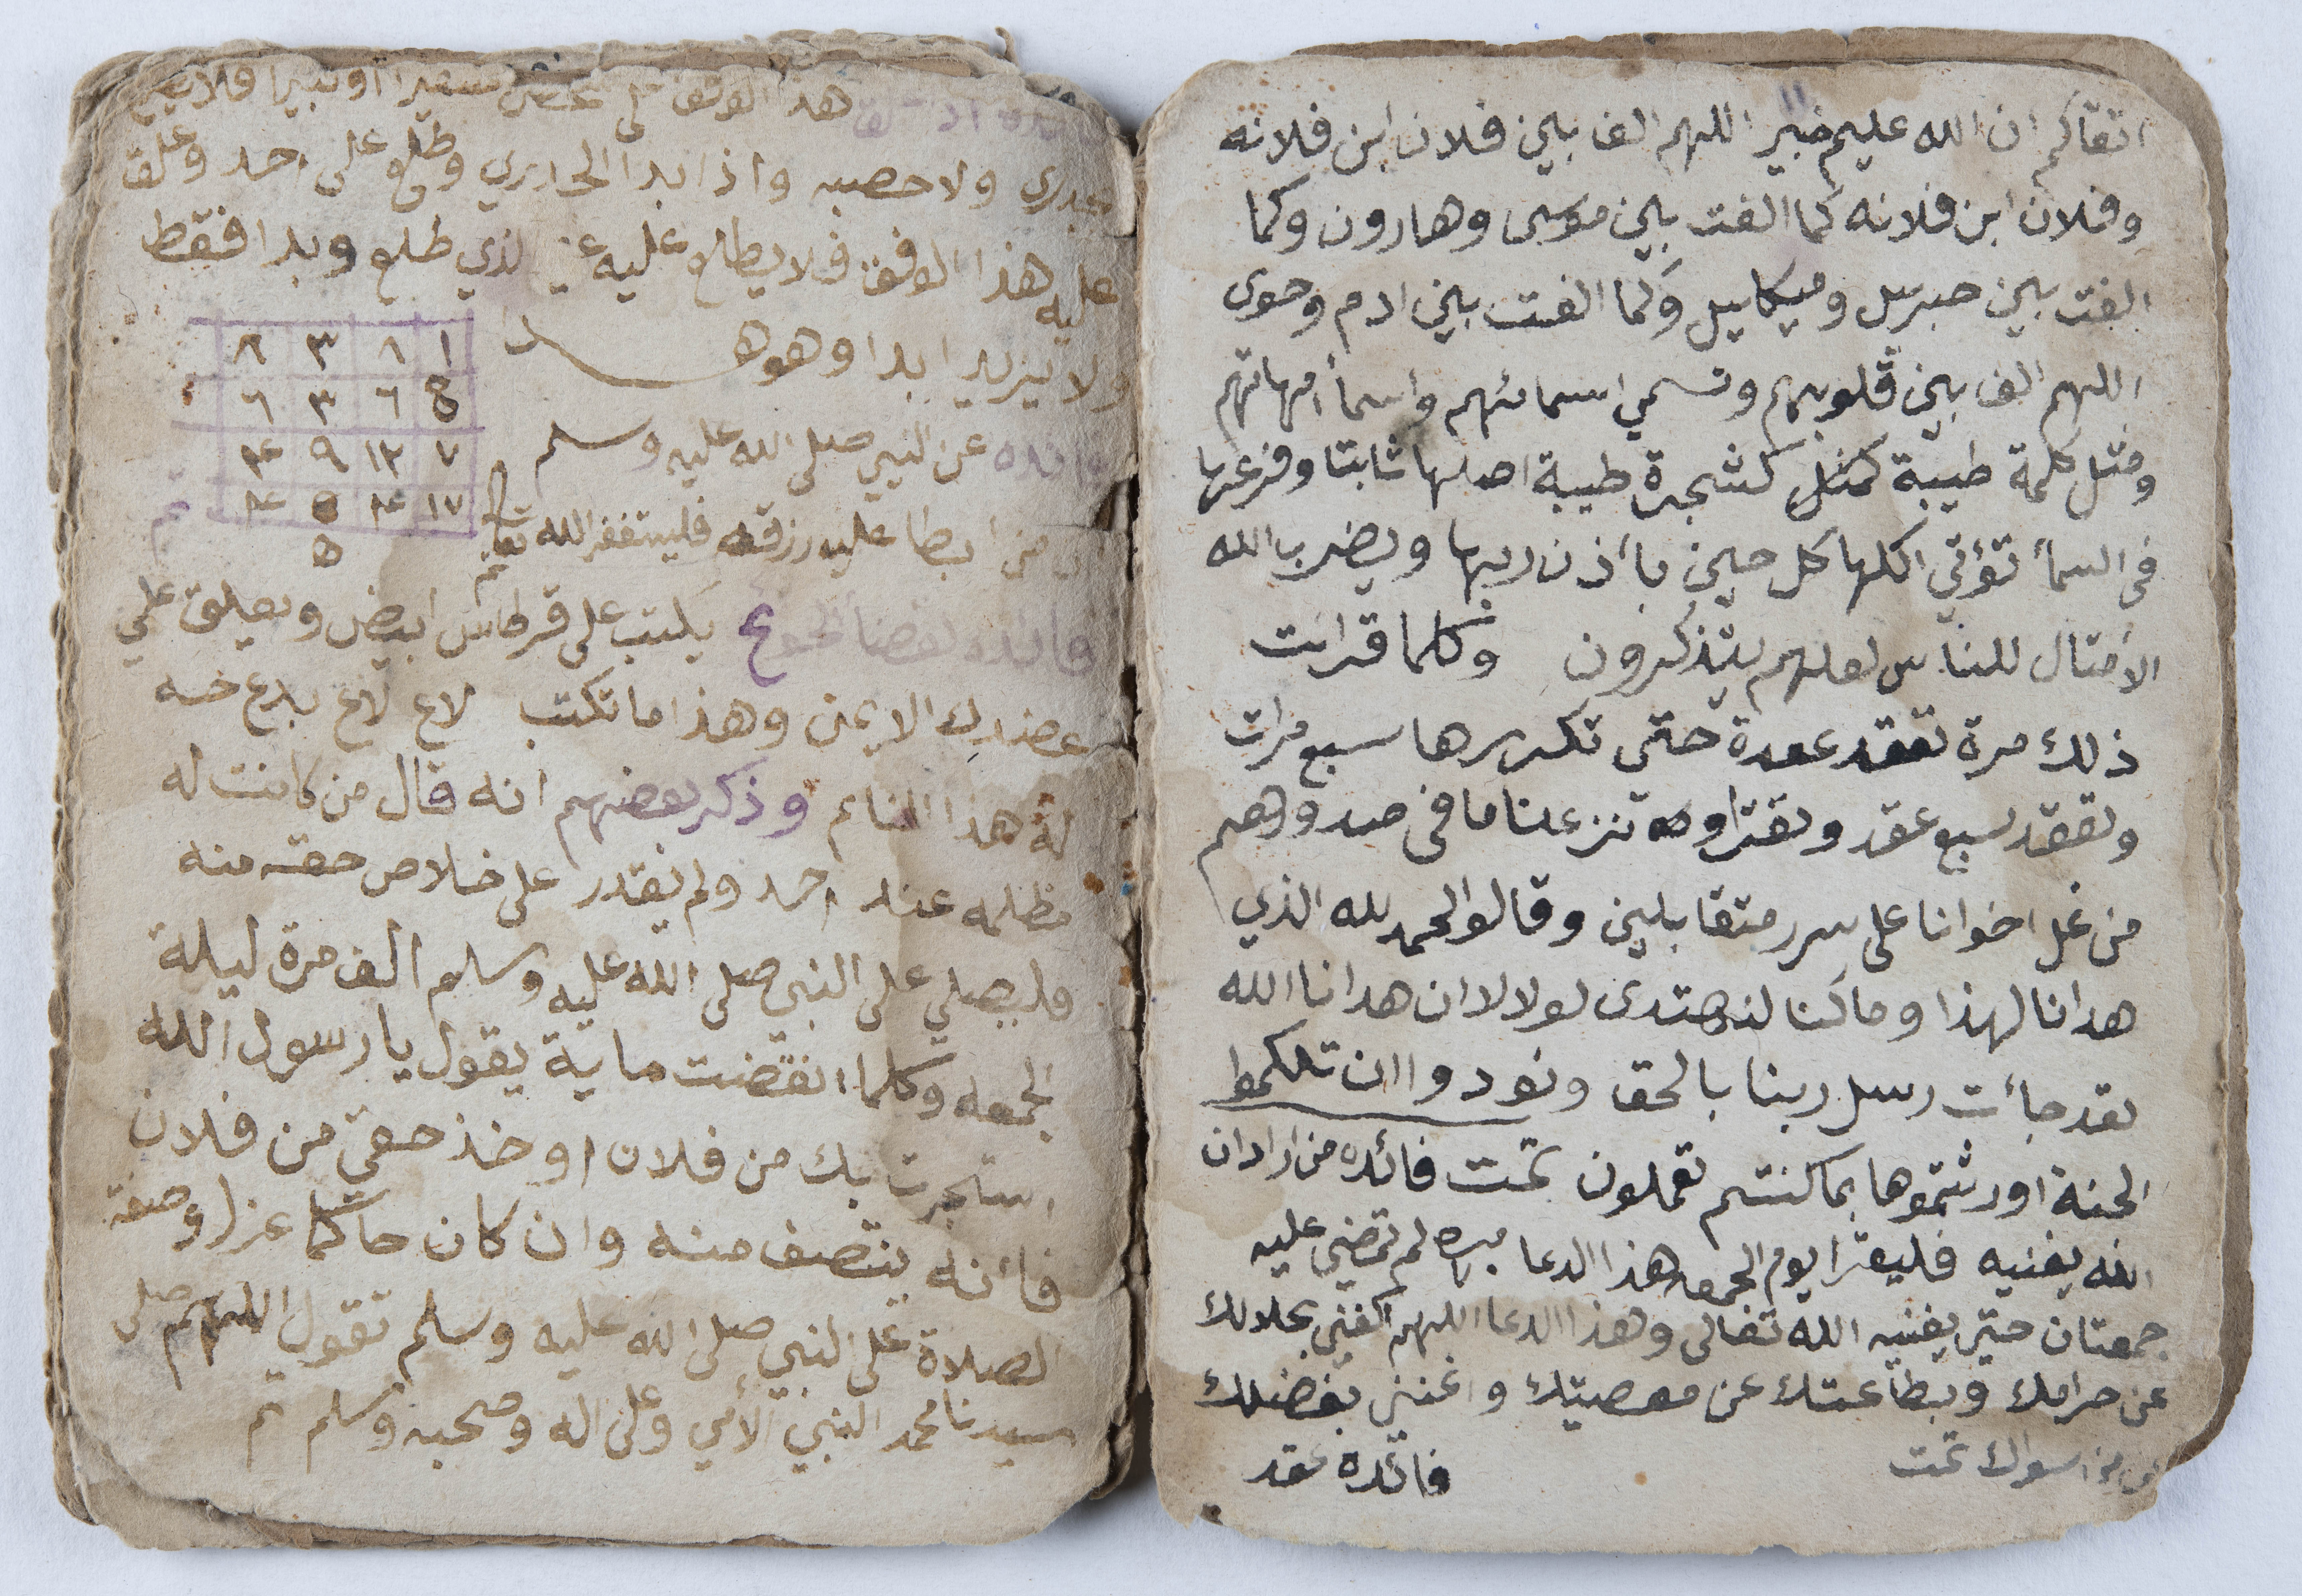 اتقاكم ان الله عليم خبير اللهم الف بين فلان ابن فلانه
وفلان ابن فلانه كما الفت بين موسى وهارون وكما
الفت بين جبريل وميكاييل وكما الفت بين ادم وحوى
اللهم الف بين قلوبهم وتسمي اسمائهم واسما امهاتهم
ومثل كلمة طيبة كمثل كشجرة طيبة اصلها ثابتا وفرعها
في السما تؤتي اكلها كل حين بأذن ربها ويضرب الله
الأمثال للناس لعلهم يتذكرون وكلما قرائت
ذلك مرة تعقد عقدة حتى تكررها سبع مرات
وتعقد سبع عقد وتقرا ونزعنا ما في صدورهم
من غل اخوانا على سرر متقابلين وقالوا الحمد لله الذي
هدانا لهذا وما كنا لنهتدى لولا لا ان هدانا الله
لقد جأت رسل ربنا بالحق ونودوا ان تلكموا
الجنة اورثتموها بما كنتم تعملون تمت فائده من اراد ان
الله يغنيه فليقرا يوم الجمعه هذا الدعا لم تمضي عليه
جمعتان حتى يغنيه الله تعالى وهذا الدعا اللهم اكفني بحلالك
عن حرامك وبطاعتك عن معصيتك واغنني بفضلك
عن من سواك تمت
فائده عقد
هذا الوفق على شخص صغيرا او كبيرا فلا يصيبه
جدري ولا حصبه واذا بدا الجدري وطلع على احد وعلق
عليه هذا الوفق فلا يطلع عليه غير الذي طلع وبدا فقط
ولا يزيد ابدا وهو هذا
١ ٨ ٣ ٨
٦ ٣ ٦
٧ ١٢ ٩
١٧
فائده عن النبي صلى الله عليه وسلم
من ابطا عليه رزقه فليستغفر الله تعالى
تم
فائده لقضا الحوئج يكتب على قرطاس ابيض ويعلق على
عضدك الايمن وهذا ما تكتب لاع لاع بدع
هذا وذكر بعضهم انه قال من كانت له
مظلمه عند احد ولم يقدر على خلاص حقه منه
فليصلي على النبي صلى الله عليه وسلم الف مرة ليلة
الجمعه وكلما انقضت ماية يقول يا رسول الله
استجرت بك من فلان او خذ حقي من فلان
فأنه ينتصف منه وان كان حاكما عزل وصفة
الصلاة على النبي صلى الله عليه وسلم تقول اللهم صلى
سيدنا محمد النبي الأمي وعلى اله وصحبه وسلم تم